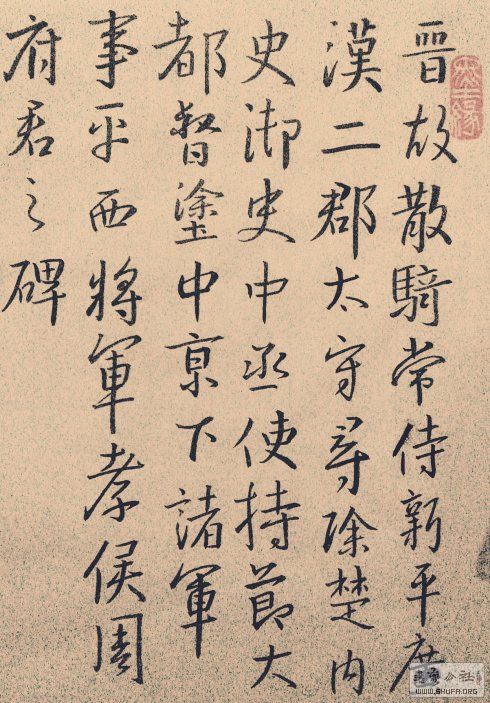 晉故散騎常侍新平廣
漢二郡太守尋除楚內
史御史中丞使持節大
都督塗中京下諸軍
事平西將軍孝侯周
府君之碑
WWW.SHUFA.ORG